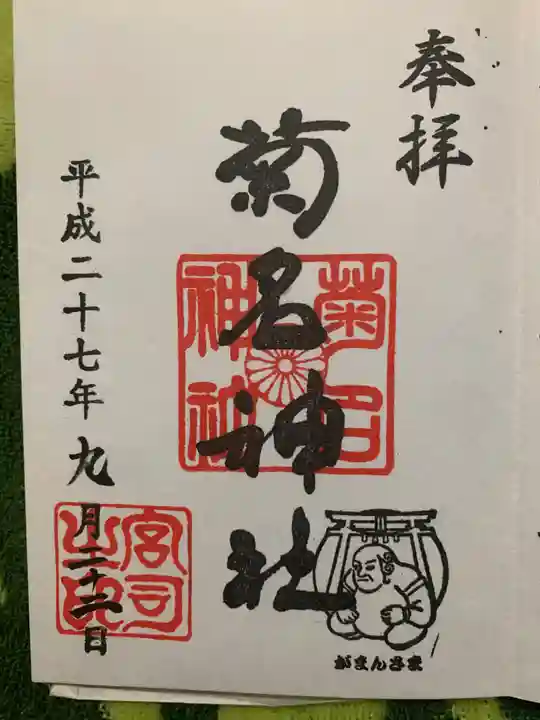 奉拝
菊名神社
菊名神社
がまんさま
平成二十七年九月二十二日
宮司之印